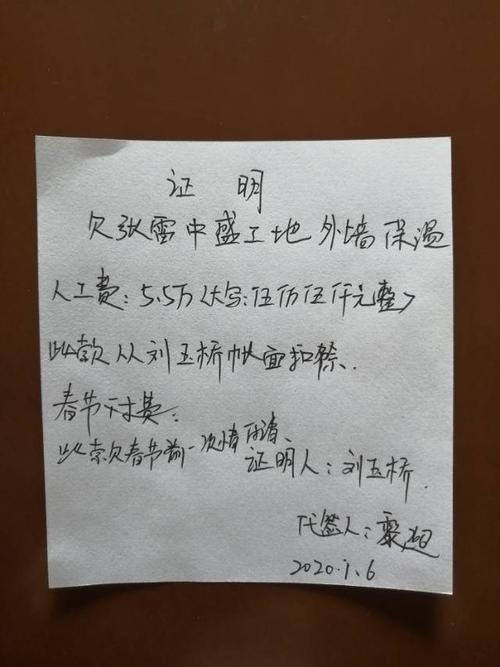 证 明
欠张雷中盛工地外墙保温
人工费：5.5万（大写：伍仿伍仟元整）
此款从刘玉桥帐面扣除.
春节付费.
此款欠春节前一次性付清、
证明人：刘玉桥.
代签人：
2020.1.6